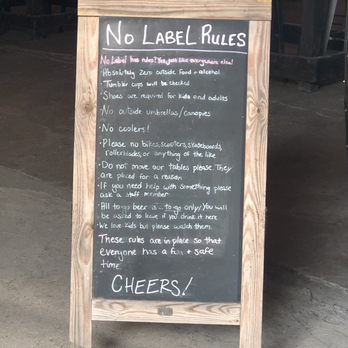 No Label Rules
No Label has rules? Yes, just like everywhere else!
· Absolutely zero outside food + alcohol
Tumbler cups will be checked
· Shoes are required for kids and adults
· No outside umbrellas/canopies
· No coolers!
· Please no bikes, scooters, skateboards,
rollerblades, or anything of the like
· Do not move our tables please. They
are placed for a reason
· If you need help with something please
ask a staff member
· All to-go beer is to go only! You will
be asked to leave if you drink it here
· We love kids but please watch them.
These rules are in place so that
everyone has a fun + safe
time
CHEERS!